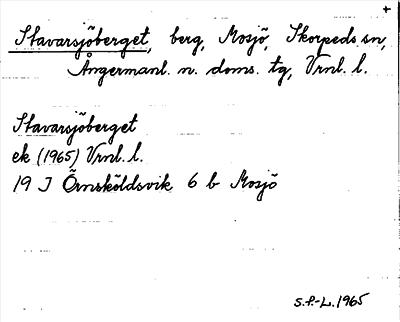 +
Stavarsjöberget, berg, Mosjö, Skorpeds sn,
Ångermanl. n. doms. tg, Vrnl. l.
Stavarsjöberget
ek (1965) Vrnl. l.
19 J Örnsköldsvik 6 b Mosjö
S.F.-L. 1965